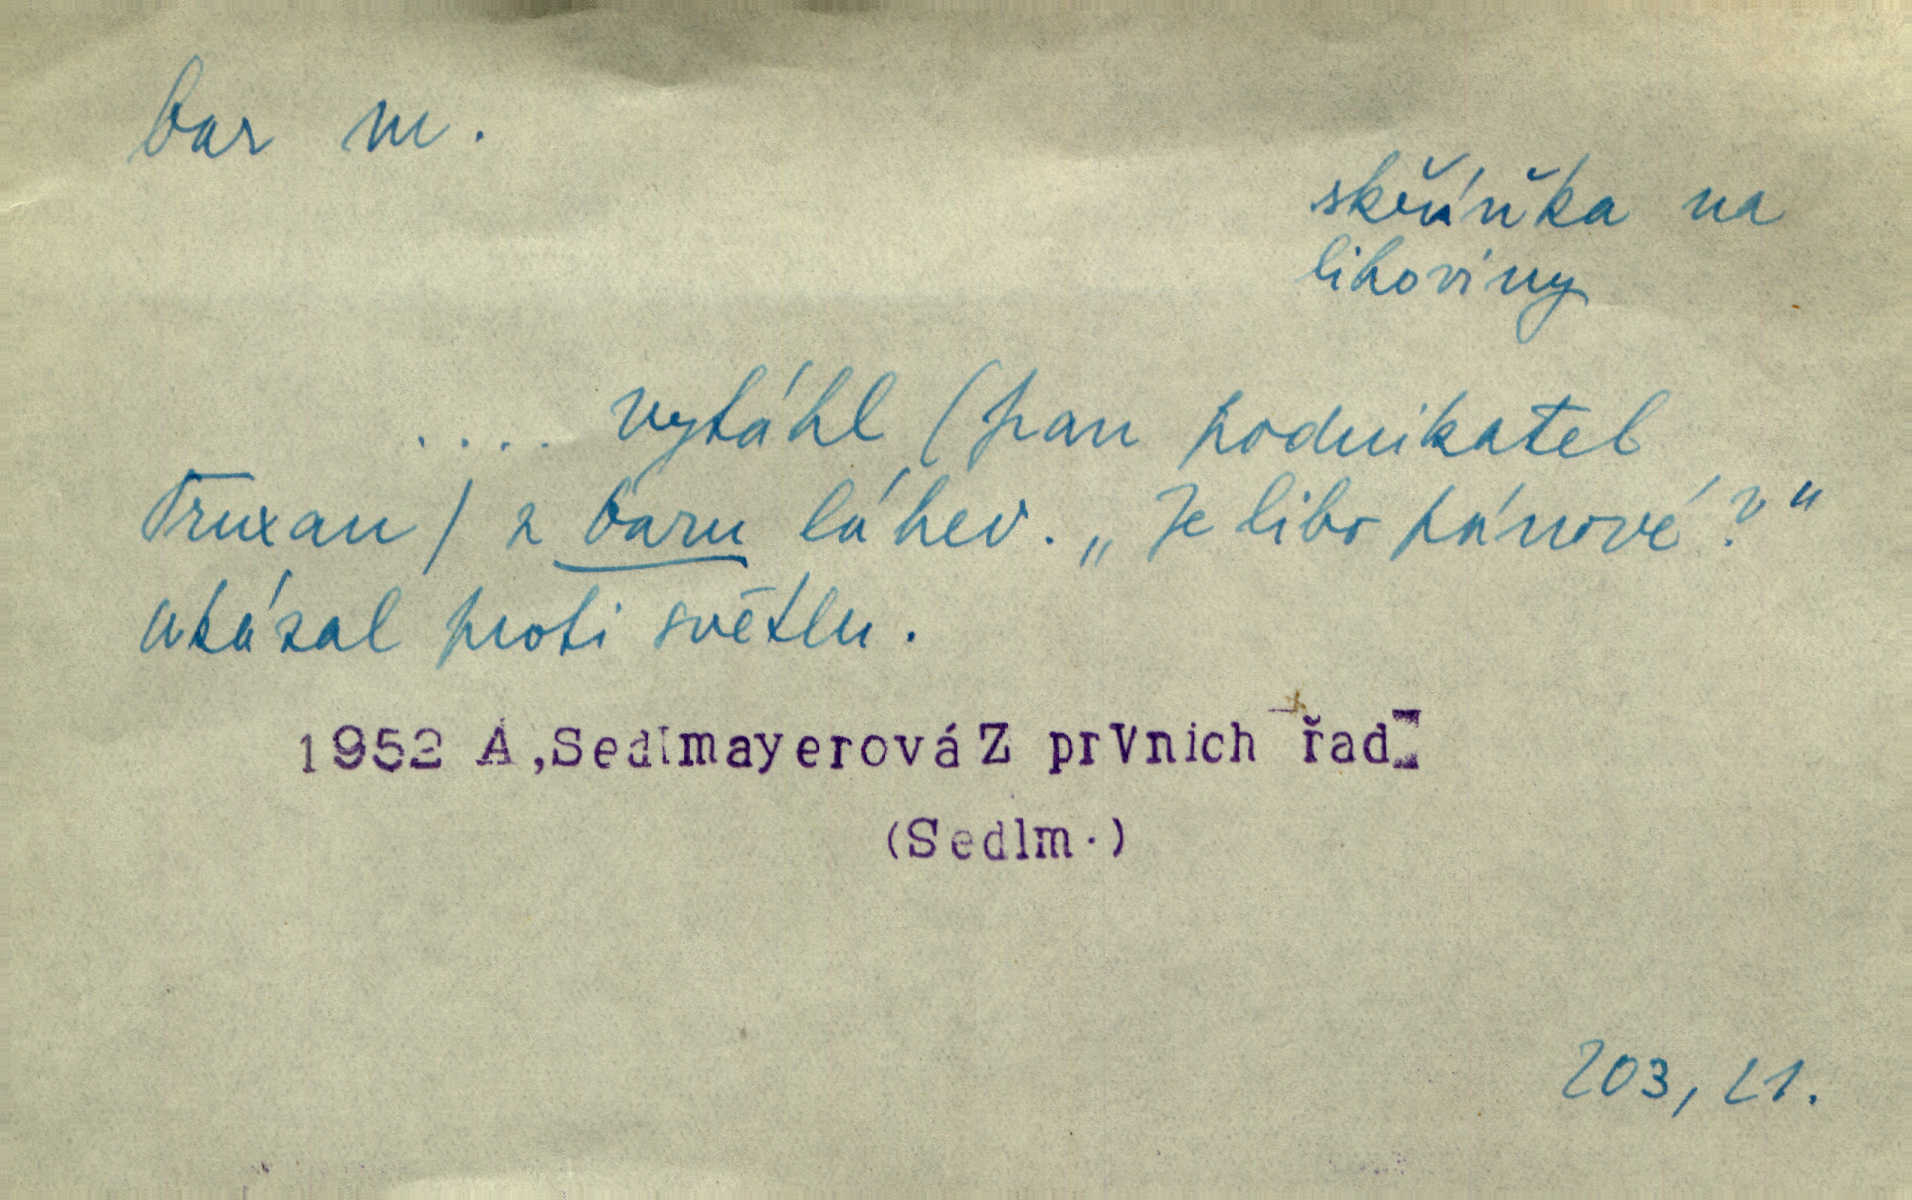 bar m.
skříňka na
lihoviny
.... vytáhl (pan podnikatel
Truxan) z baru láhev. „Je libo pánové?“
ukázal proti světlu.
1952 A,Sedlmayerová Z prVnich řad
(Sedlm.)
203, 21.